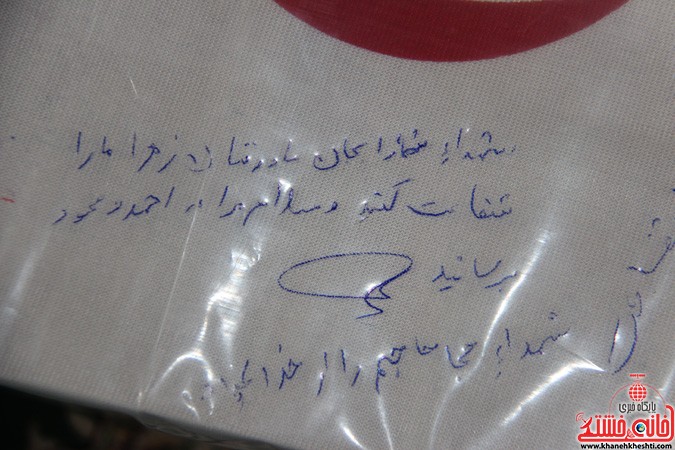 شهداء شمارا بجان مادرتان زهرا مارا
شفاعت کنید و سلام برادر احمد و محمود
برسانید
شهداء حاجتم را از خدا بخواه
پایگاه خبری
خانه خشتی
www.khanehkheshti.com